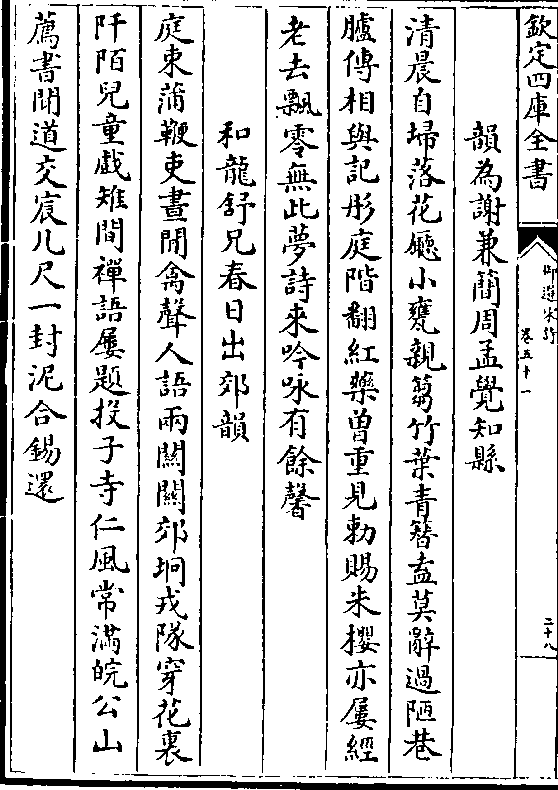 欽定四庫全書
御選宋詩
卷五十一
二十八
韻為謝兼簡周孟覺知縣
清晨自埽落花廳小甕親篘竹葉青簪盍莫辭過陋巷
臚傳相與記彤庭階翻紅藥曽重見勅賜朱櫻亦屢經
老去飄零無此夢詩來吟咏有餘馨
和龍舒兄春日出郊韻
庭東蒲鞭吏晝閒禽聲人語兩關關郊坰戎隊穿花裏
阡陌兒童戯雉間禪語屢題投子寺仁風常滿皖公山
薦書聞道交宸几尺一封泥合錫還